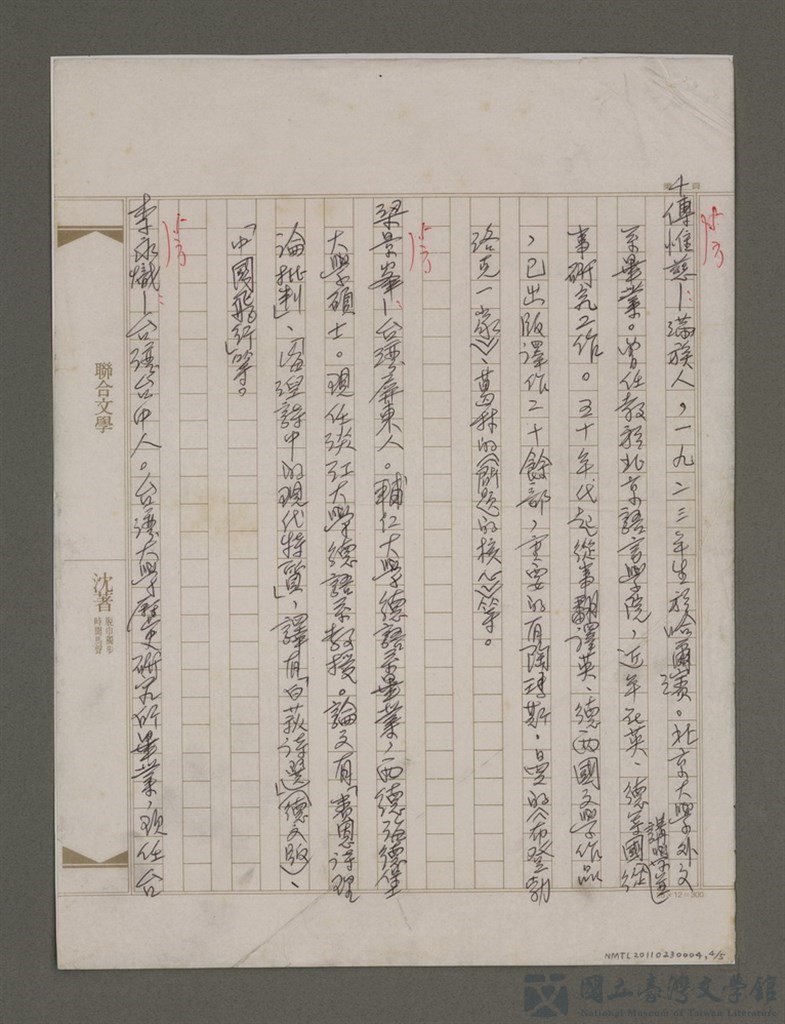 傅惟慈—滿族人，一九二三年生於哈爾濱。北京大學外文
系畢業。曾任教於北京語言學院，近年在英、德等國講學並從
事研究工作。五十年代起從事翻譯英、德兩國文學作品
，已出版譯作二十餘部，重要的有陶瑪斯．曼的《布登勃
洛克一家》、葛林的《問題的核心》等。
梁景峯—台灣屏東人。輔仁大學德語系畢業，西德海德堡
大學碩士。現任淡江大學德語系教授。論文有「賽恩詩理
論批判」、「笛理詩中的現代特質」，譯有「白萩詩選」（德文版）、
「中國飛行」等。
李永熾—台灣台中人。台灣大學歷史研究所畢業，現任台
小方
小方
小方
聯合文學
沈著
NMTL20110230004, 4/5
國立臺灣文學館
National Museum of Taiwan Literature